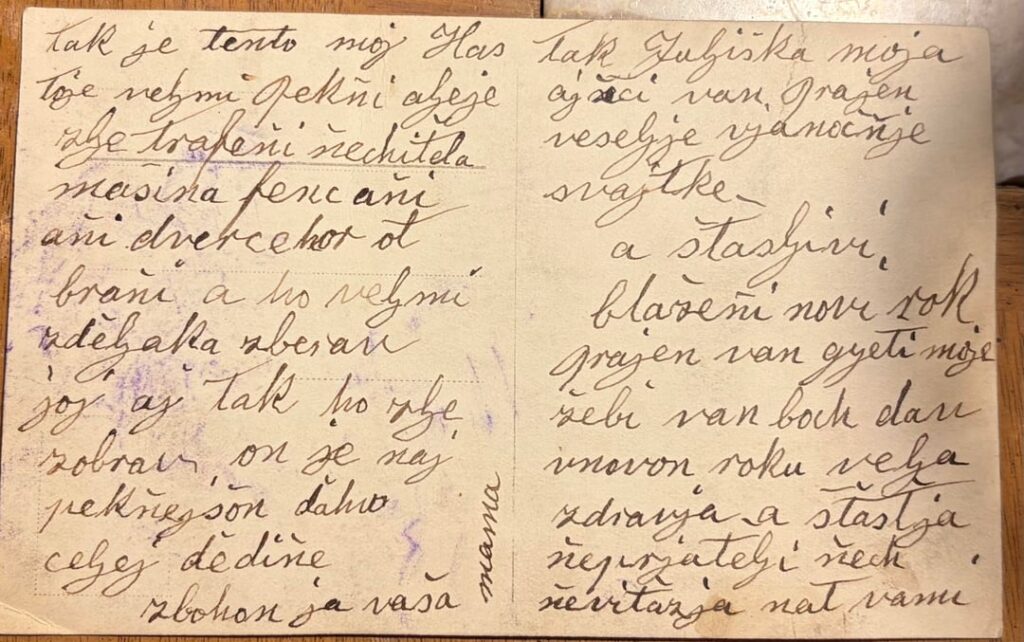 tak je tento moj Has
toje veljmi pekňi aljeje
zlje trafeňi ňechitela
mašina fenc aňi
aňi dverce hor ot
braňi a ho veljmi
zděljaka zberav
joj aj tak ho zlje
zobrav on je naj
pekňejšon dáho
celjej dědiňe
zbohon ja vaša
mama
tak Juljiška moja
ajści van prajen
veseljje vjanočňje
svajtke
a štasljivi
blažeňi novi rok
prajen van gyeti moje
žebi van boch dav
vnovon roku velja
zdravja a šťastja
ňeprjatelji ňech
ňevitazja nat vami